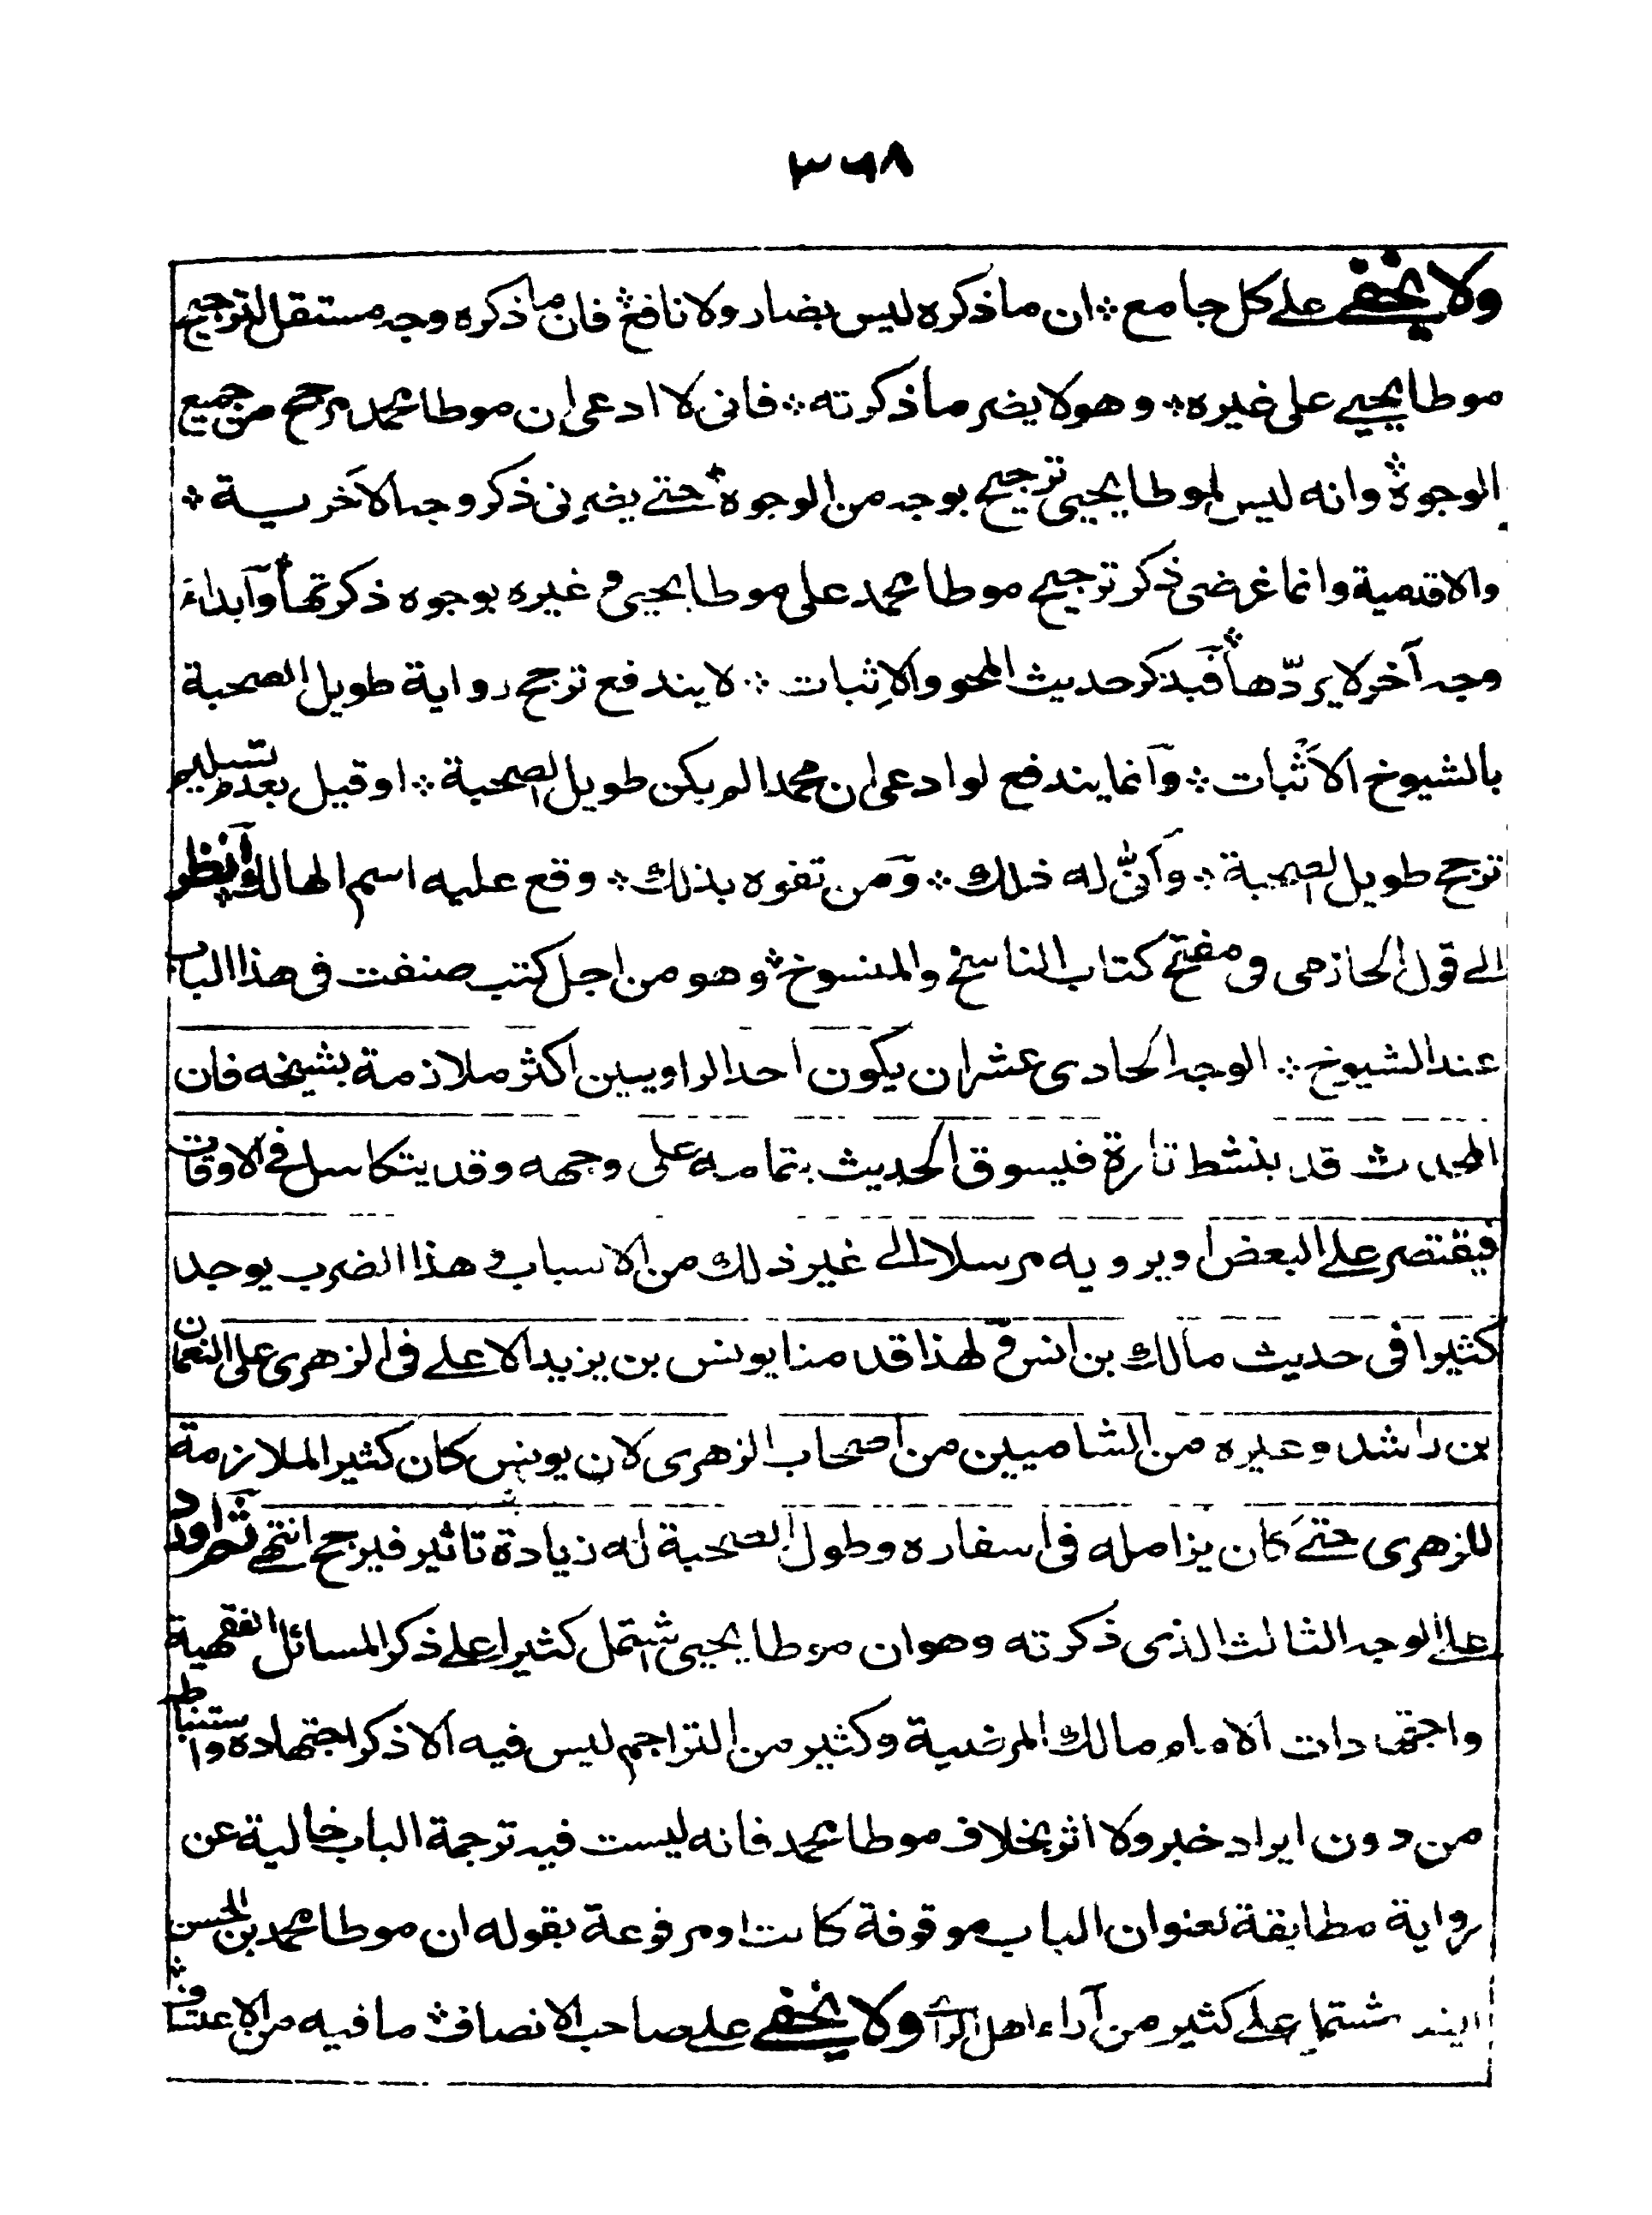 ٣٦٨
ولا يخفى على كل جامع ۞ ان ما ذكره ليس بضار ولا نافع ۞ فان ما ذكره وجه مستقل لترجيح
موطا يحيى على غيره ۞ وهو لا يضر ما ذكرته ۞ فانى لا ادعى ان موطا محمد مرجح من جميع
الوجوه ۞ وانه ليس لموطا يحيى ترجيح بوجه من الوجوه ۞ حتى يضرنى ذكر وجه الآخرية ۞
والاقدمية وانما غرضى ذكر ترجيح موطا محمد على موطا يحيى وغيره بوجوه ذكرتها وآبداء
وجه آخر لا يردّها ۞ فبذكر حديث المحو والاِثبات ۞ لا يندفع ترجح رواية طويل الصحبة
بالشيوخ الاَثبات ۞ وآنما يندفع لو ادعى ان محمدا لم يكن طويل الصحبة ۞ او قيل بعدم تسليم
ترجح طويل الصحبة ۞ وآنّى له ذلك ۞ ومَن تفوه بذلك ۞ وقع عليه اسم الهالك ۞ وآنظر
الى قول الحازمى فى مفتتح كتاب الناسخ والمنسوخ ۞ وهو من اجل كتب صنفت فى هذا الباب
عند الشيوخ ۞ الوجه الحادى عشر ان يكون احد الراويين اكثر ملازمة بشيخه فان
المحدث قد ينشط تارة فيسوق الحديث بتمامه على وجهه وقد يتكاسل فى الاوقات
فيقتصر على البعض او يرويه مرسلا الى غير ذلك من الاسباب وهذا الضرب يوجد
كثيرا فى حديث مالك بن انس ولهذا قدمنا يونس بن يزيد الاعلى فى الزهرى على النعمان
بن راشد وغيره من الشاميين من اصحاب الزهرى لان يونس كان كثير الملازمة
للزهرى حتى كان يزامله فى اسفاره وطول الصحبة له زيادة تاثير فيرجح انتهى ثم اورد
على الوجه الثالث الذى ذكرته وهو ان موطا يحيى شتمل كثيرا على ذكر المسائل الفقهية
واجتهادات الامام مالك المرضية وكثير من التراجم ليس فيه الا ذكر اجتهاده واستنباطه
من دون ايراد خبر ولا اثر بخلاف موطا محمد فانه ليست فيه ترجمة الباب خالية عن
رواية مطابقة لعنوان الباب موقوفة كانت او مرفوعة بقوله ان موطا محمد بن الحسن
على كثير من آراء اهل الرائ ولا يخفى على صاحب الانصاف ۞ ما فيه من الاعتساف ۞